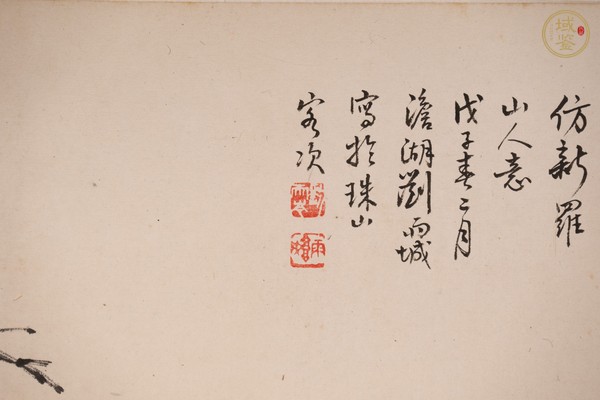 仿新羅
山人意
戊子春二月
澹湖劉雨城
寫於珠山
客次
域鉴